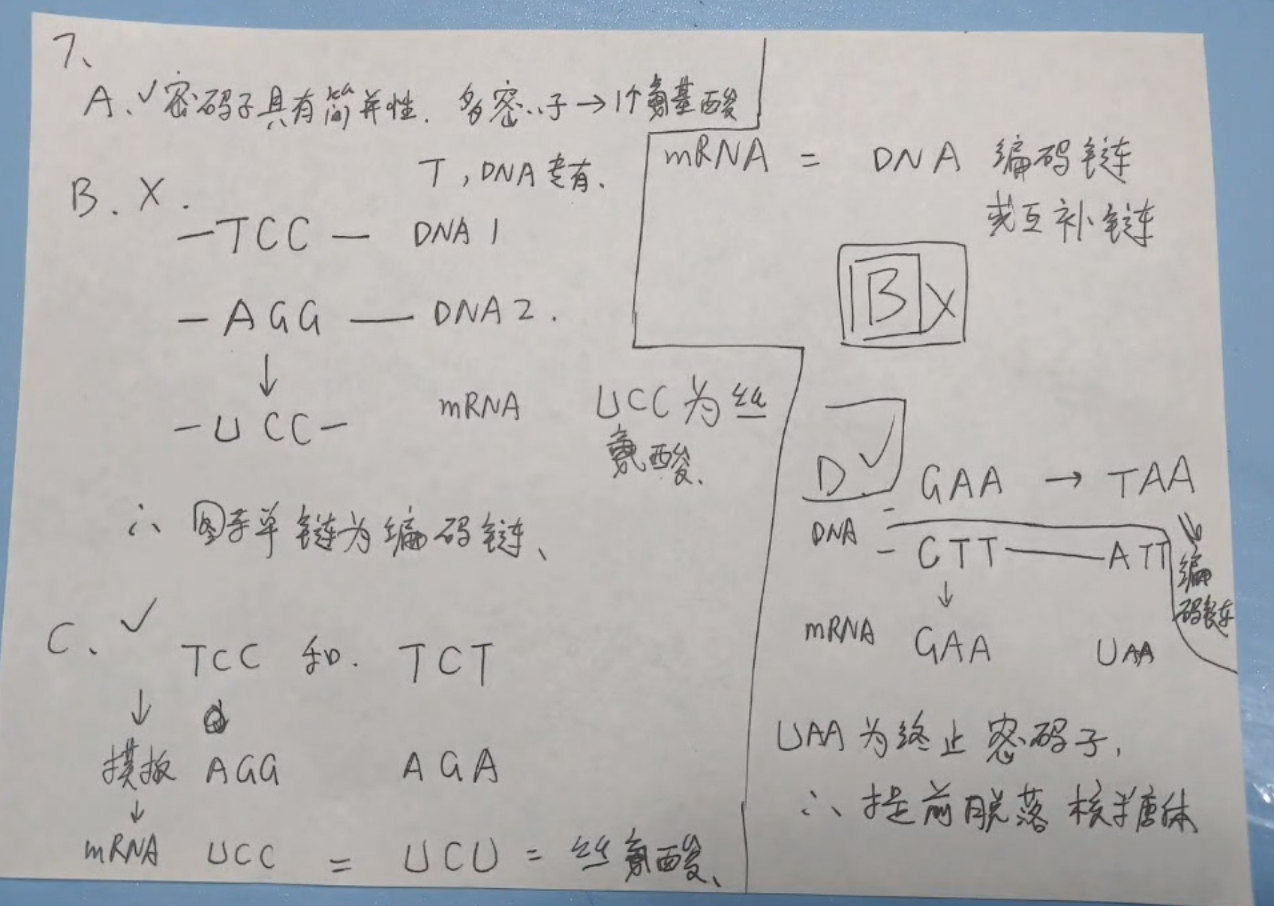 7、
A、✓密码子具有简并性. 多密..子→1个氨基酸
B. X.
T, DNA专有.
—TCC— DNA 1
—AGG—— DNA 2.
↓
—UCC— mRNA UCC为丝
氨酸.
∴ 图示单链为编码链、
C. ✓
TCC 和. TCT
↓
模板 AGG AGA
↓
mRNA UCC = UCU = 丝氨酸、
mRNA = DNA 编码链
或互补链
B X
D ✓ GAA → TAA
DNA = CTT —— ATT
编
码链
↓
mRNA GAA UAA
UAA为终止密码子,
∴ 提前脱落核半唐体